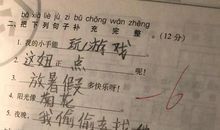 bǎ xià liè jù zi bǔ chōng wán zhěng
二、把下列句子补充完整。(12分)
1. 我的小手能玩游戏
2. 这妞正点呢!
3. 放暑假多快乐呀!
4. 阳光像菊花
5. 夜晚,我偷偷去找
-6